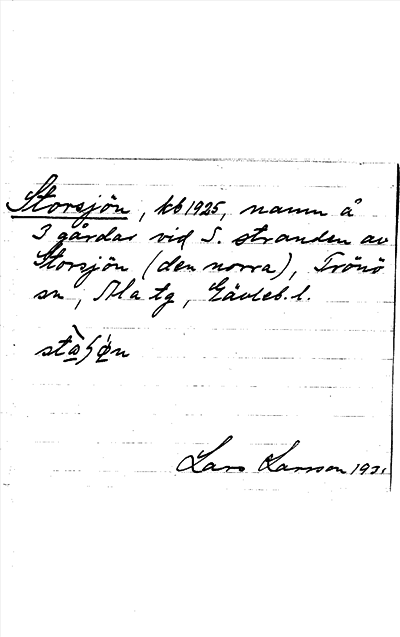 Storsjön, kb 1925, namn å
3 gårdar vid S. stranden av
Storsjön (den norra), Trönö
sn, Ala tg, Gävleb. l.
Lars Larsson